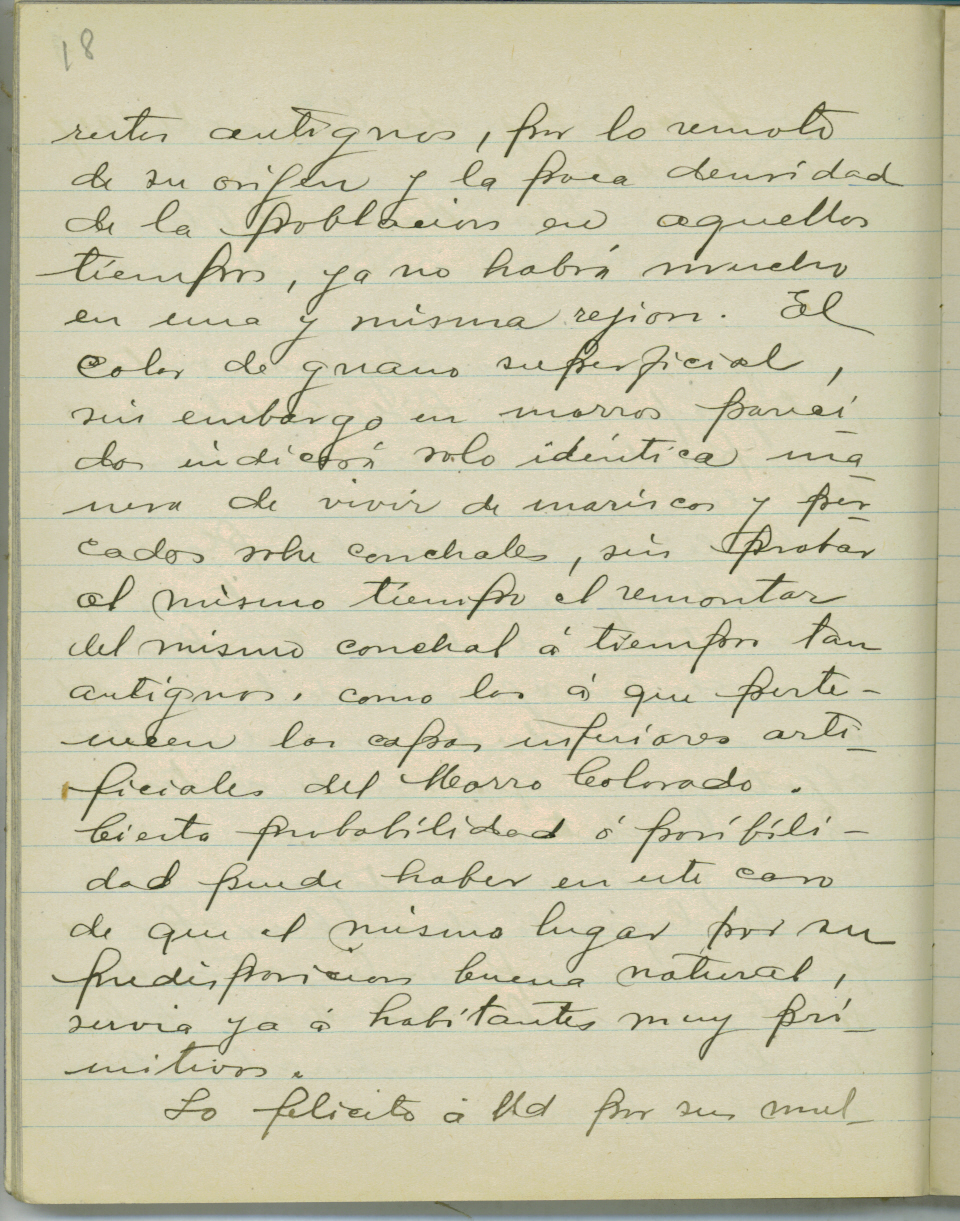 18
restos antiguos, por lo remoto
de su orijen y la poca densidad
de la poblacion en aquellos
tiempos, ya no habrá mucho
en una y misma rejion. El
color de guano superficial,
sin embargo en morros pareci
dos indicará solo idéntica ma
nera de vivir de mariscos y pes
cados sobre conchales, sin probar
al mismo tiempo el remontar
del mismo conchal á tiempos tan
antiguos, como los á que perte-
necen las capas inferiores arti-
ficiales del Morro Colorado.
Cierta probabilidad ó posibili-
dad puede haber en este caso
de que el mismo lugar por su
predisposicion buena natural,
servia ya á habitantes muy pri-
mitivos.
Lo felicito á Ud por sus mul-